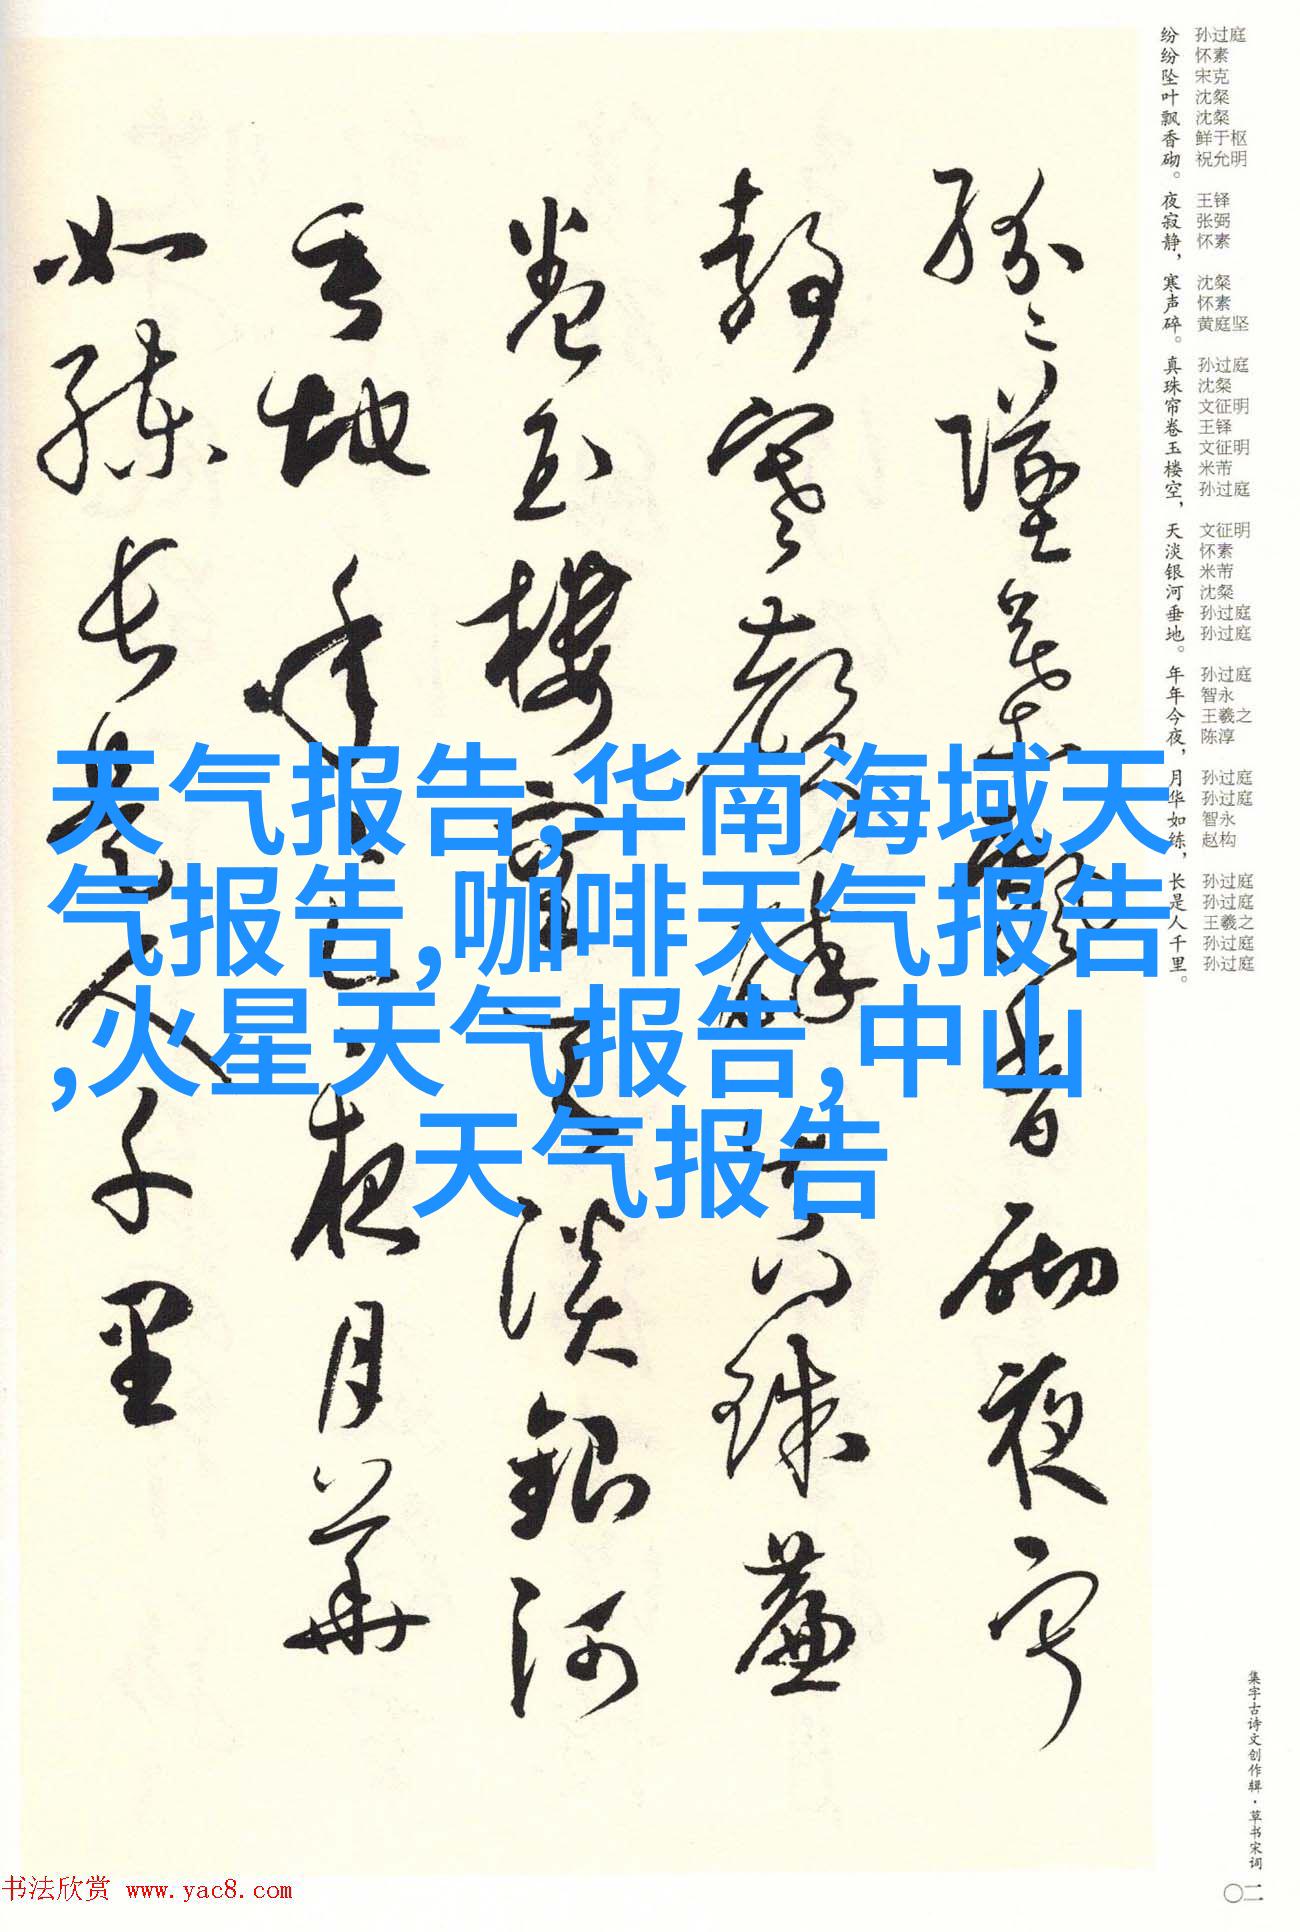 纷纷坠叶飘香砌。夜寂静,寒声碎。真珠帘卷玉楼空,天淡银河垂地。年年今夜,月华如练,长是人千里。
孙过庭 怀素 宋克 沈粲 沈粲 鲜于枢 祝允明 王铎 张弼 怀素 沈粲 怀素 黄庭坚 孙过庭 沈粲 文征明 王铎 文征明 米芾 孙过庭 文征明 怀素 米芾 沈粲 孙过庭 孙过庭 孙过庭 智永 王羲之 陈淳 孙过庭 孙过庭 智永 赵构 孙过庭 孙过庭 王羲之 孙过庭 孙过庭
纷纷坠叶飘香砌夜寂
静寒声碎真珠帘
卷玉楼空天淡银河
垂地年年今夜月华
如练长是人千里
天气报告,华南海域天
气报告,咖啡天气报告
,火星天气报告,中山
天气报告
集字古诗文创作辑·草书宋词
〇二
书法欣赏 www.yac8.com